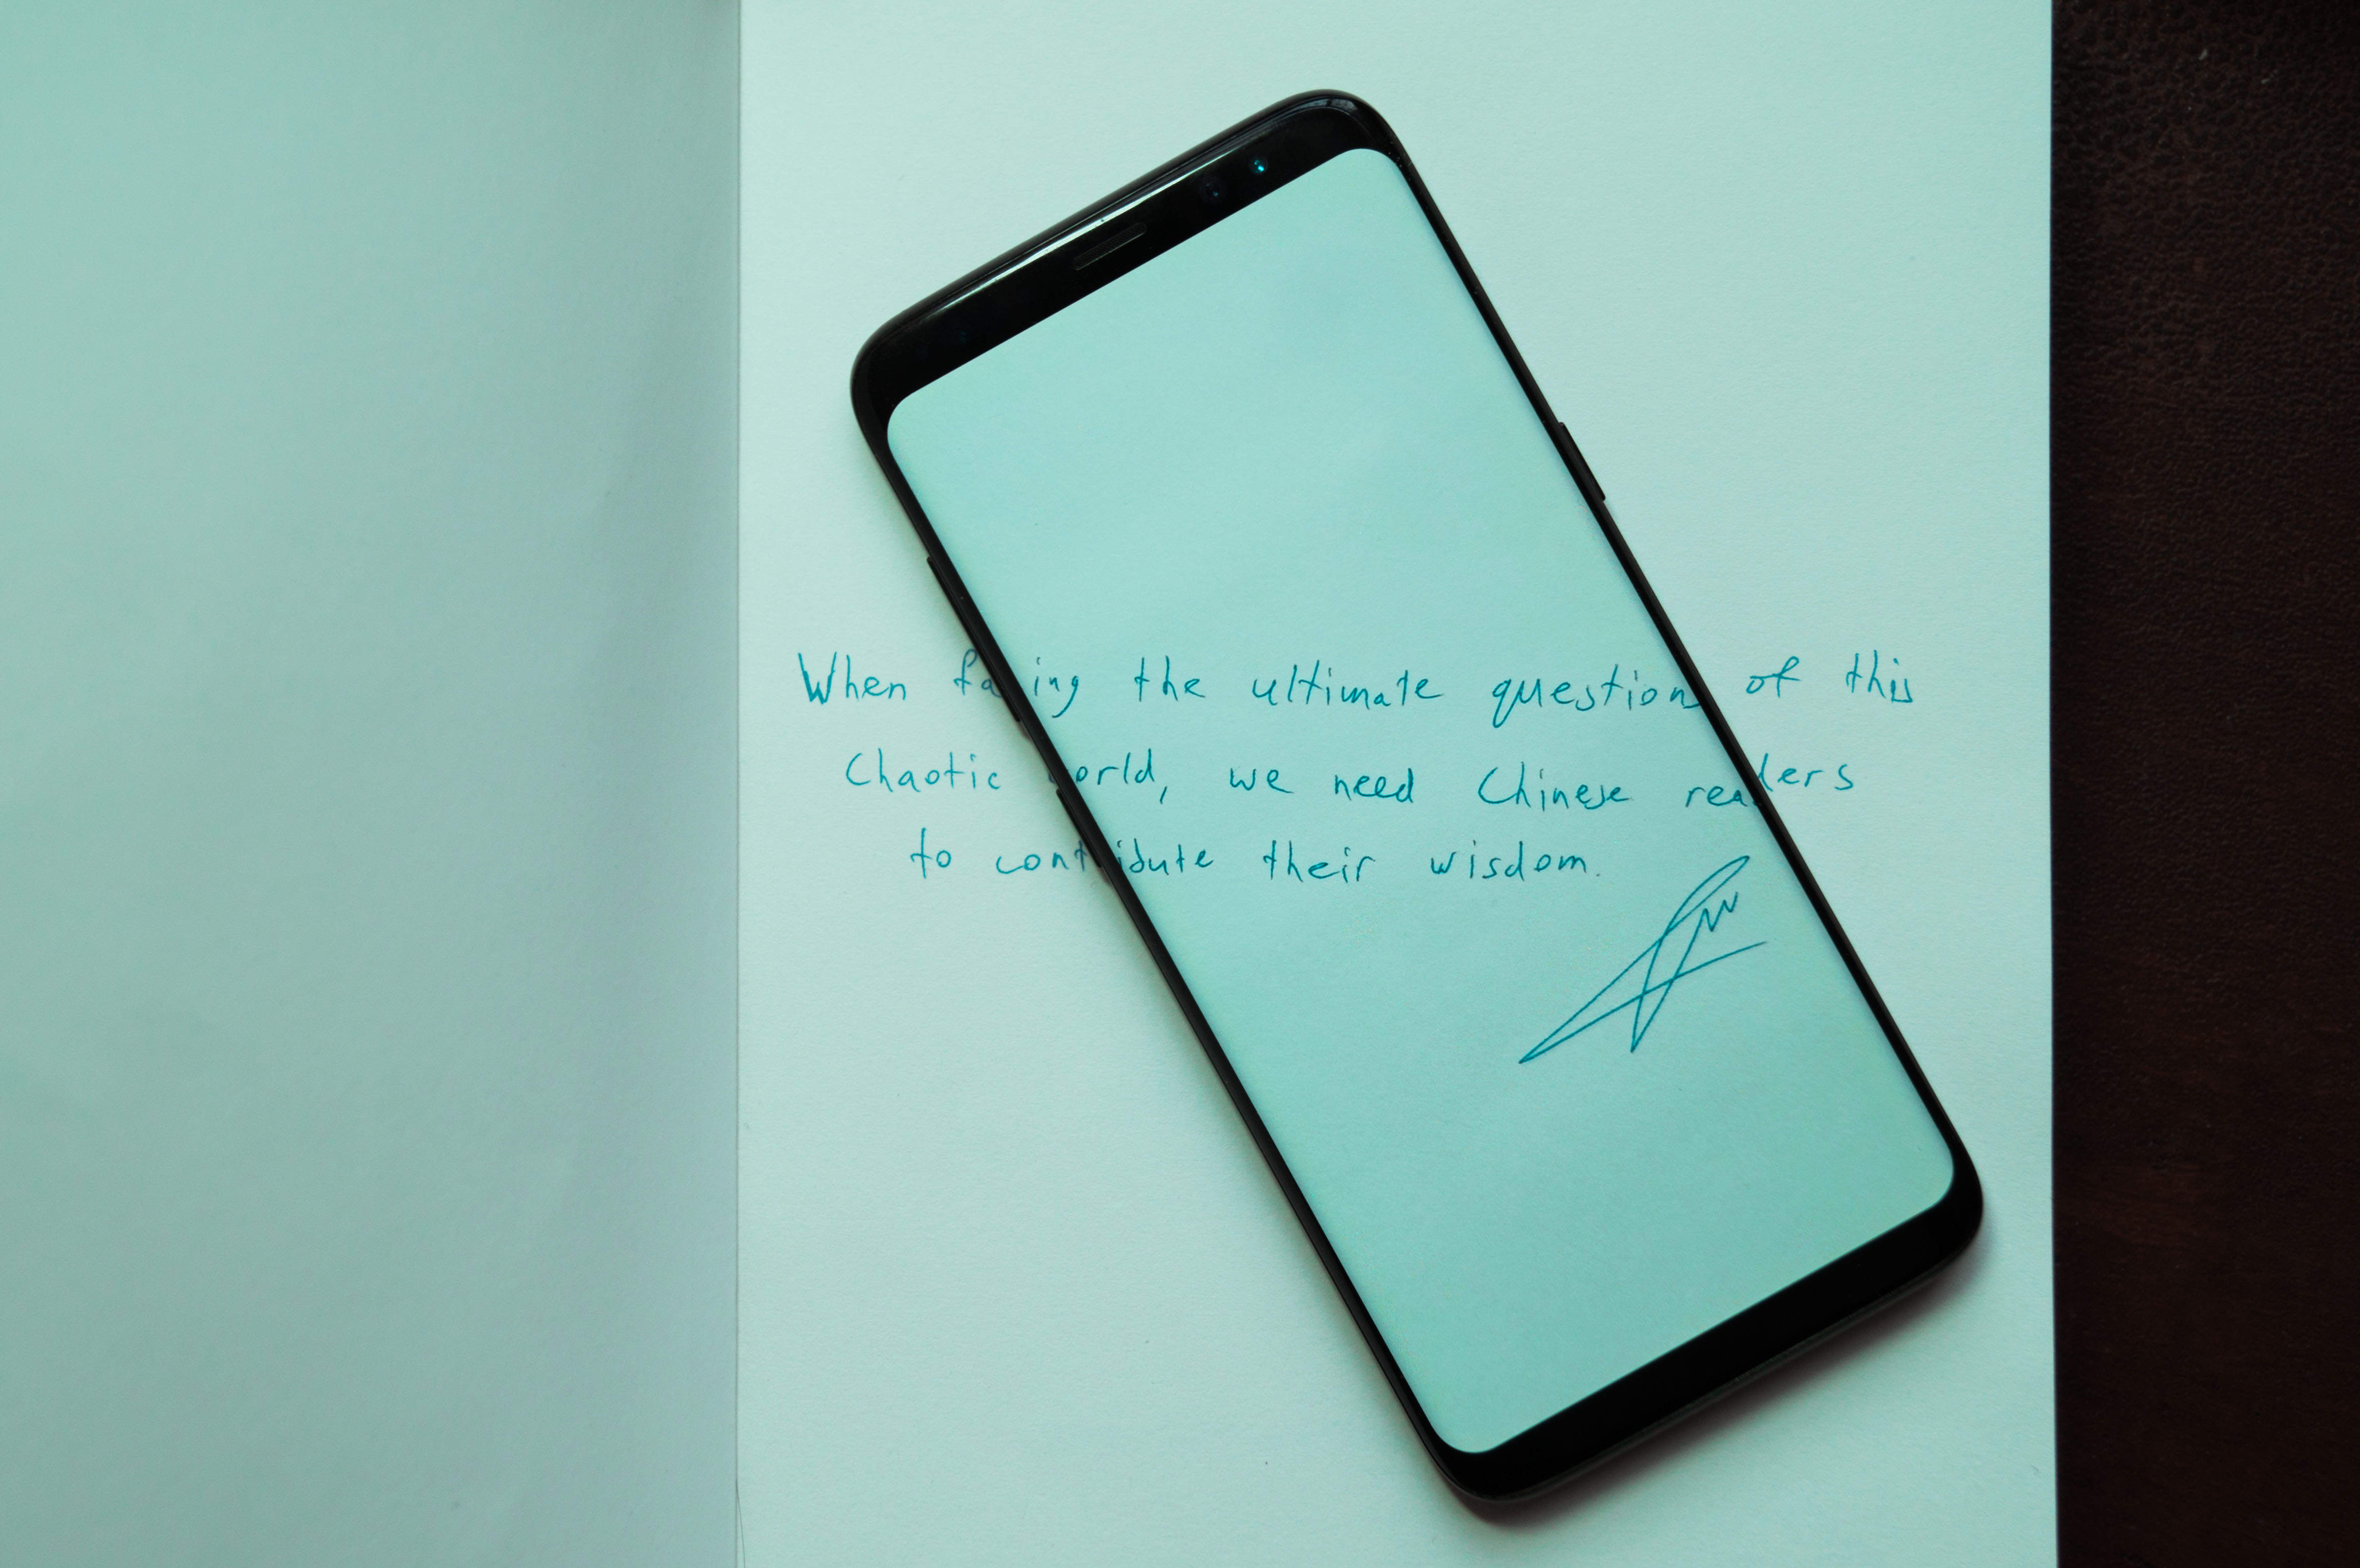 When facing the ultimate question of this
Chaotic world, we need Chinese readers
to contribute their wisdom.